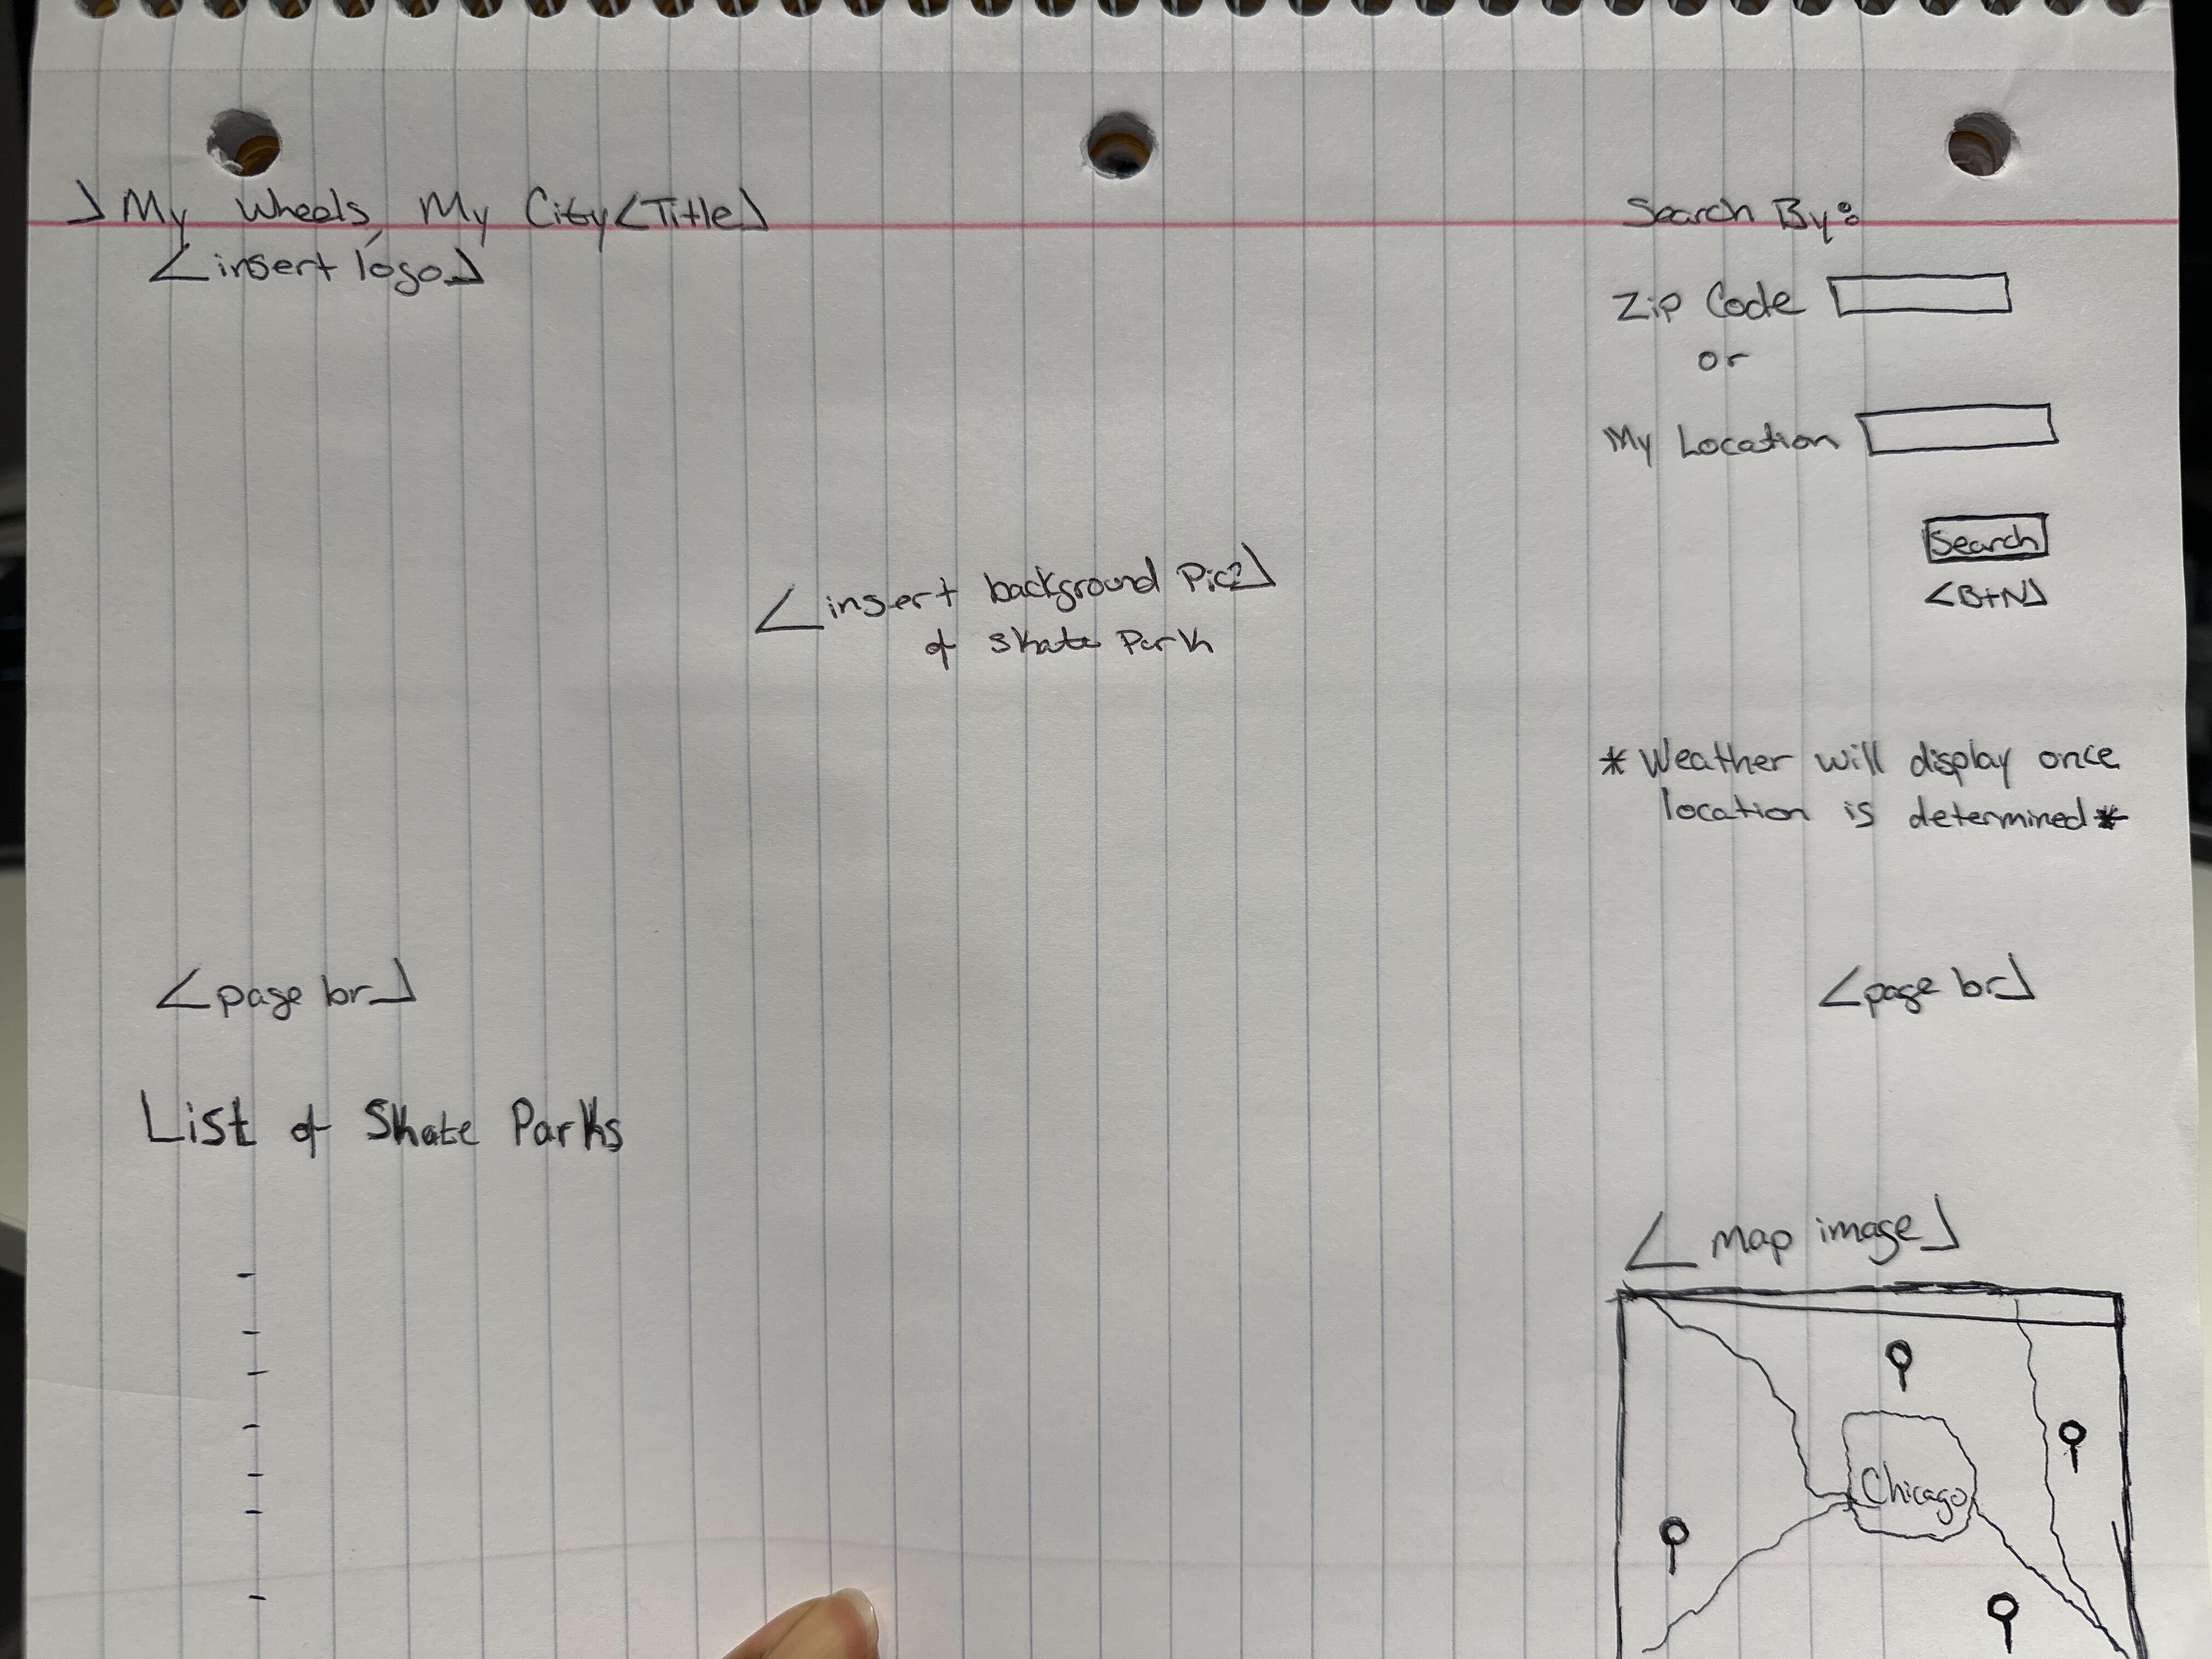 >My Wheels, My City<Title>
<insert logo>
Search By:
Zip Code
or
My Location
Search
<BtN>
<insert background Pic?>
of skate Park
*Weather will display once
location is determined*
<page br>
<page br>
List of Skate Parks
<map image>
Chicago